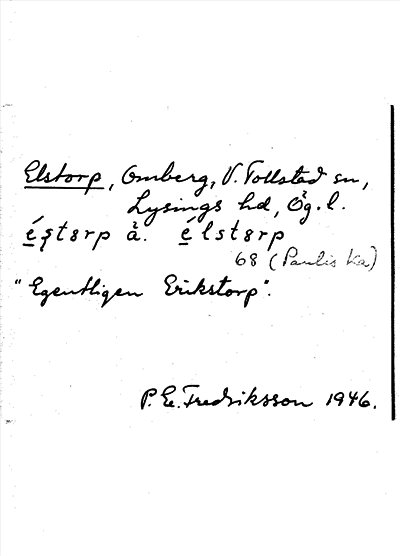 Elstorp, Omberg, V. Tollstad sn,
Lysings hd, Ög. l.
éştɘrp à. élstɘrp
68 (Paulis ka)
"Egentligen Erikstorp".
P. E. Fredriksson 1946.